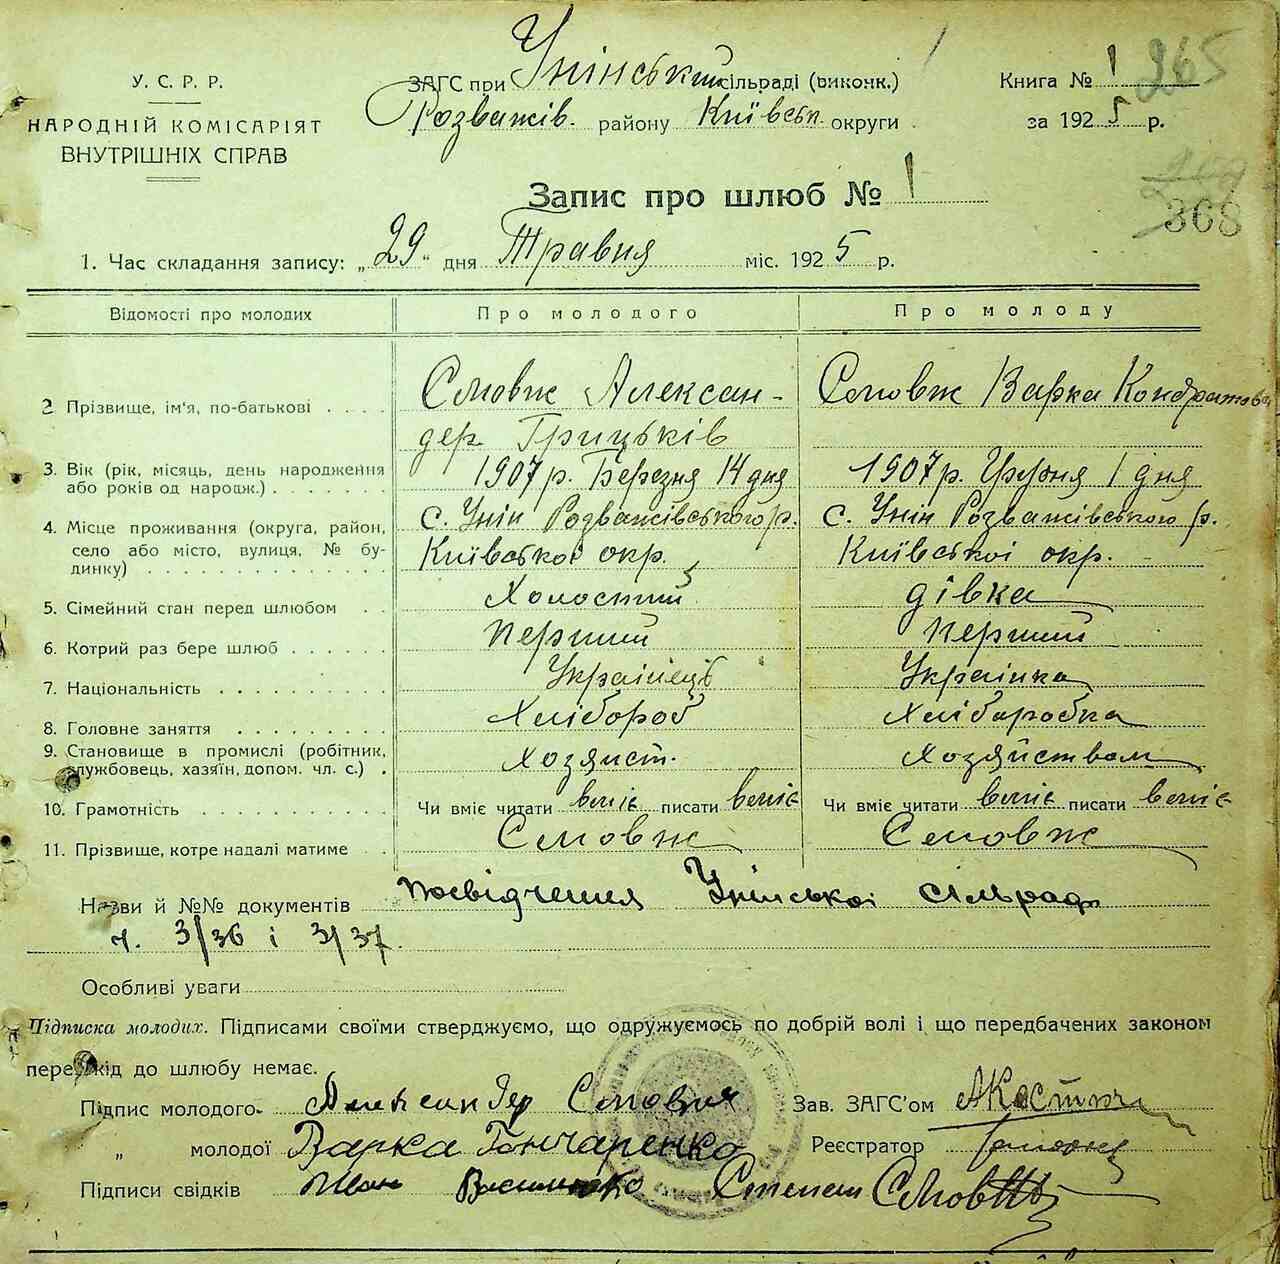 У. С. Р. Р.
НАРОДНІЙ КОМІСАРІЯТ
ВНУТРІШНІХ СПРАВ
ЗАГС при Унінський сільраді (виконк.)
Розважів. району Київськ. округи
Книга № 1
за 1925 р.
265
368
Запис про шлюб № 1
1. Час складання запису: „29“ дня Травня міс. 1925 р.
Відомості про молодих Про молодого Про молоду
2. Прізвище, ім'я, по-батькові Смовж Алексан- Смовж Варка Кондратова
дер Грицьків
3. Вік (рік, місяць, день народження 1907 р. Березня 14 дня 1907 р. Червня 1 дня
або років од народж.)
4. Місце проживання (округа, район, с. Унін Розважівського р. с. Унін Розважівського р.
село або місто, вулиця, № бу- Київської окр. Київської окр.
динку)
5. Сімейний стан перед шлюбом Холостий дівка
6. Котрий раз бере шлюб Перший перший
7. Національність Українець Українка
8. Головне заняття Хлібороб Хліборобка
9. Становище в промислі (робітник, Хозяйст. Хозяйством
службовець, хазяїн, допом. чл. с.)
10. Грамотність Чи вміє читати вміє писати вміє Чи вміє читати вміє писати вміє
11. Прізвище, котре надалі матиме Смовж Смовж
Назви й №№ документів посвідчення Унінської сільради
ч. 3/36 і 3/37.
Особливі уваги
Підписка молодих. Підписами своїми стверджуємо, що одружуємось по добрій волі і що передбачених законом
перешкід до шлюбу немає.
Підпис молодого Александер Смовж Зав. ЗАГС'ом
„ молодої Варка Гончаренко Реєстратор
Підписи свідків Іван Василенко Степан Смовж